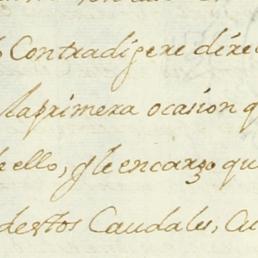 Contradigere dire
la primera ocasion q
ello, y le encargo qu
destos Caudales, Cu